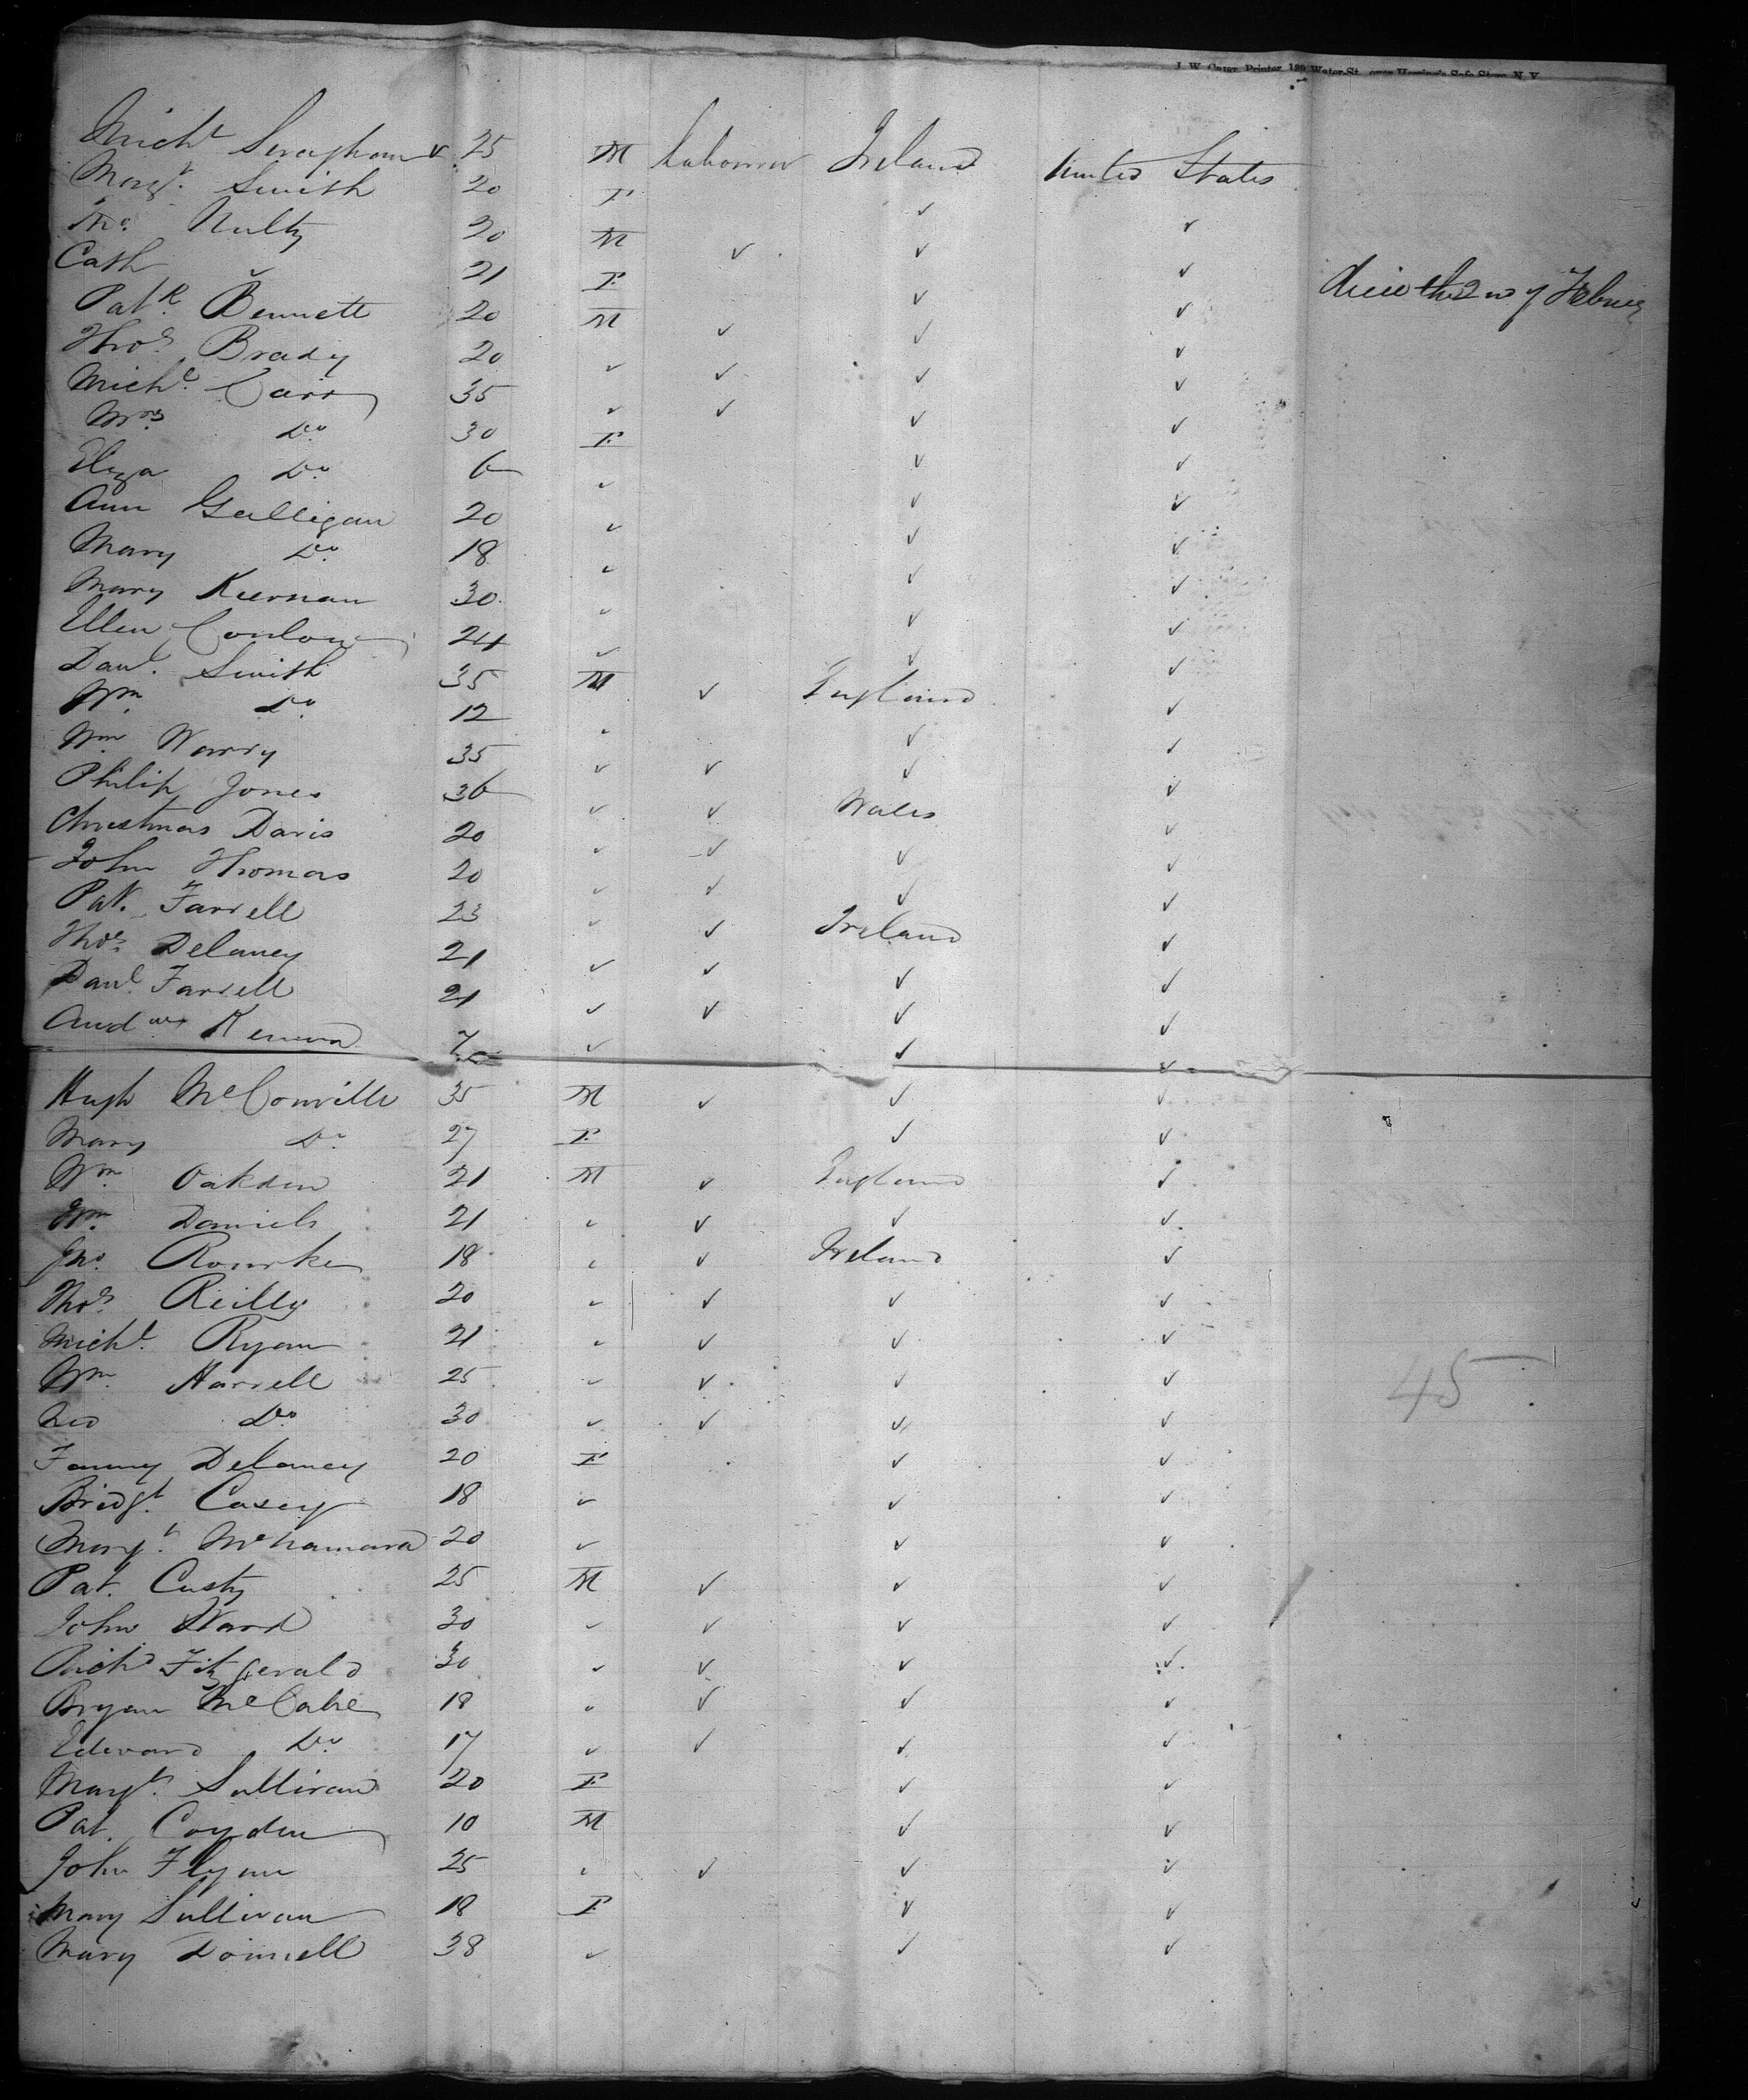 J. W. Printer, 120 Water-St., over Herring's Safe Store, N. Y.
Mich^l ✓ 25 M Labourer Ireland United States
Marg^t Smith 20 F ✓ ✓
Nulty 20 M ✓ ✓ ✓
Cath 21 F ✓ ✓ the 2nd of
Pat^k Bennett 20 M ✓ ✓ ✓
Tho^s Brady 20 ✓ ✓ ✓ ✓
Mich^l Carr 35 ✓ ✓ ✓ ✓
Mrs Do 30 F ✓ ✓
Eliza Do 6 ✓ ✓ ✓
Ann Galligan 20 ✓ ✓ ✓
Mary Do 18 ✓ ✓ ✓
Mary Kiernan 30 ✓ ✓ ✓
Ellen Conlon 24 ✓ ✓ ✓
Dan^l Smith 35 M ✓ England ✓
Wm Do 12 ✓ ✓ ✓
Wm Warry 35 ✓ ✓ ✓ ✓
Philip Jones 36 ✓ ✓ Wales ✓
Christmas Davis 20 ✓ ✓ ✓ ✓
John Thomas 20 ✓ ✓ ✓ ✓
Pat. Farrell 23 ✓ ✓ Ireland ✓
Tho^s Delaney 21 ✓ ✓ ✓ ✓
Dan^l Farrell 21 ✓ ✓ ✓ ✓
And^w 7 ✓ ✓ ✓
Hugh McConville 35 M ✓ ✓ ✓
Mary Do 27 F ✓ ✓
Wm Oakden 21 M ✓ England ✓
Wm Daniels 21 ✓ ✓ ✓ ✓
Jno. Rourke 18 ✓ ✓ Ireland ✓
Tho^s Reilly 20 ✓ ✓ ✓ ✓
Mich^l Ryan 21 ✓ ✓ ✓ ✓
Wm Harrell 25 ✓ ✓ ✓ ✓ 45
Ned Do 30 ✓ ✓ ✓ ✓
Fanny Delaney 20 F ✓ ✓
Bridg^t Casey 18 ✓ ✓ ✓
Marg^t McNamara 20 ✓ ✓ ✓
Pat. Custy 25 M ✓ ✓ ✓
John Ward 30 ✓ ✓ ✓ ✓
Rich^d Fitzgerald 30 ✓ ✓ ✓ ✓
Bryan McCabe 18 ✓ ✓ ✓ ✓
Edward Do 17 ✓ ✓ ✓ ✓
Marg^t Sullivan 20 F ✓ ✓
Pat. Coyden 10 M ✓ ✓
John Flynn 25 ✓ ✓ ✓ ✓
Mary Sullivan 18 F ✓ ✓
Mary Donnell 38 ✓ ✓ ✓